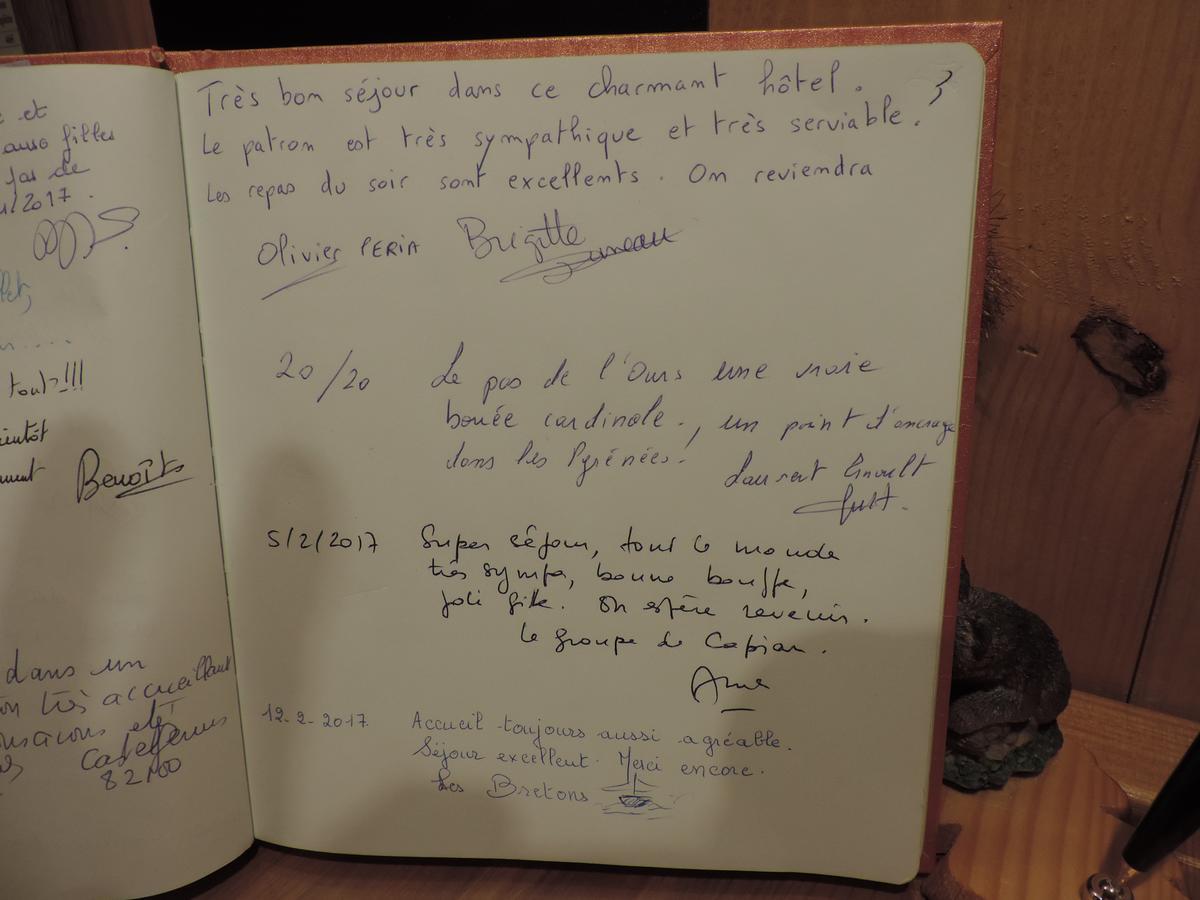 et
filles
de
/2017.
tout !!!
Benoît
dans un
très accueillant
Castelferrus
82100
Très bon séjour dans ce charmant hôtel.
Le patron est très sympathique et très serviable.
Les repas du soir sont excellents. On reviendra
Olivier PERIA Brigitte
20/20 Le pas de l'Ours une vraie
bouée cardinale., un point d'ancrage
dans les Pyrénées.
5/2/2017 Super séjour, tout le monde
très sympa, bonne bouffe,
joli gîte. On espère revenir.
le groupe de Capian.
Anne
12-2-2017 Accueil toujours aussi agréable.
Séjour excellent. Merci encore.
Les Bretons